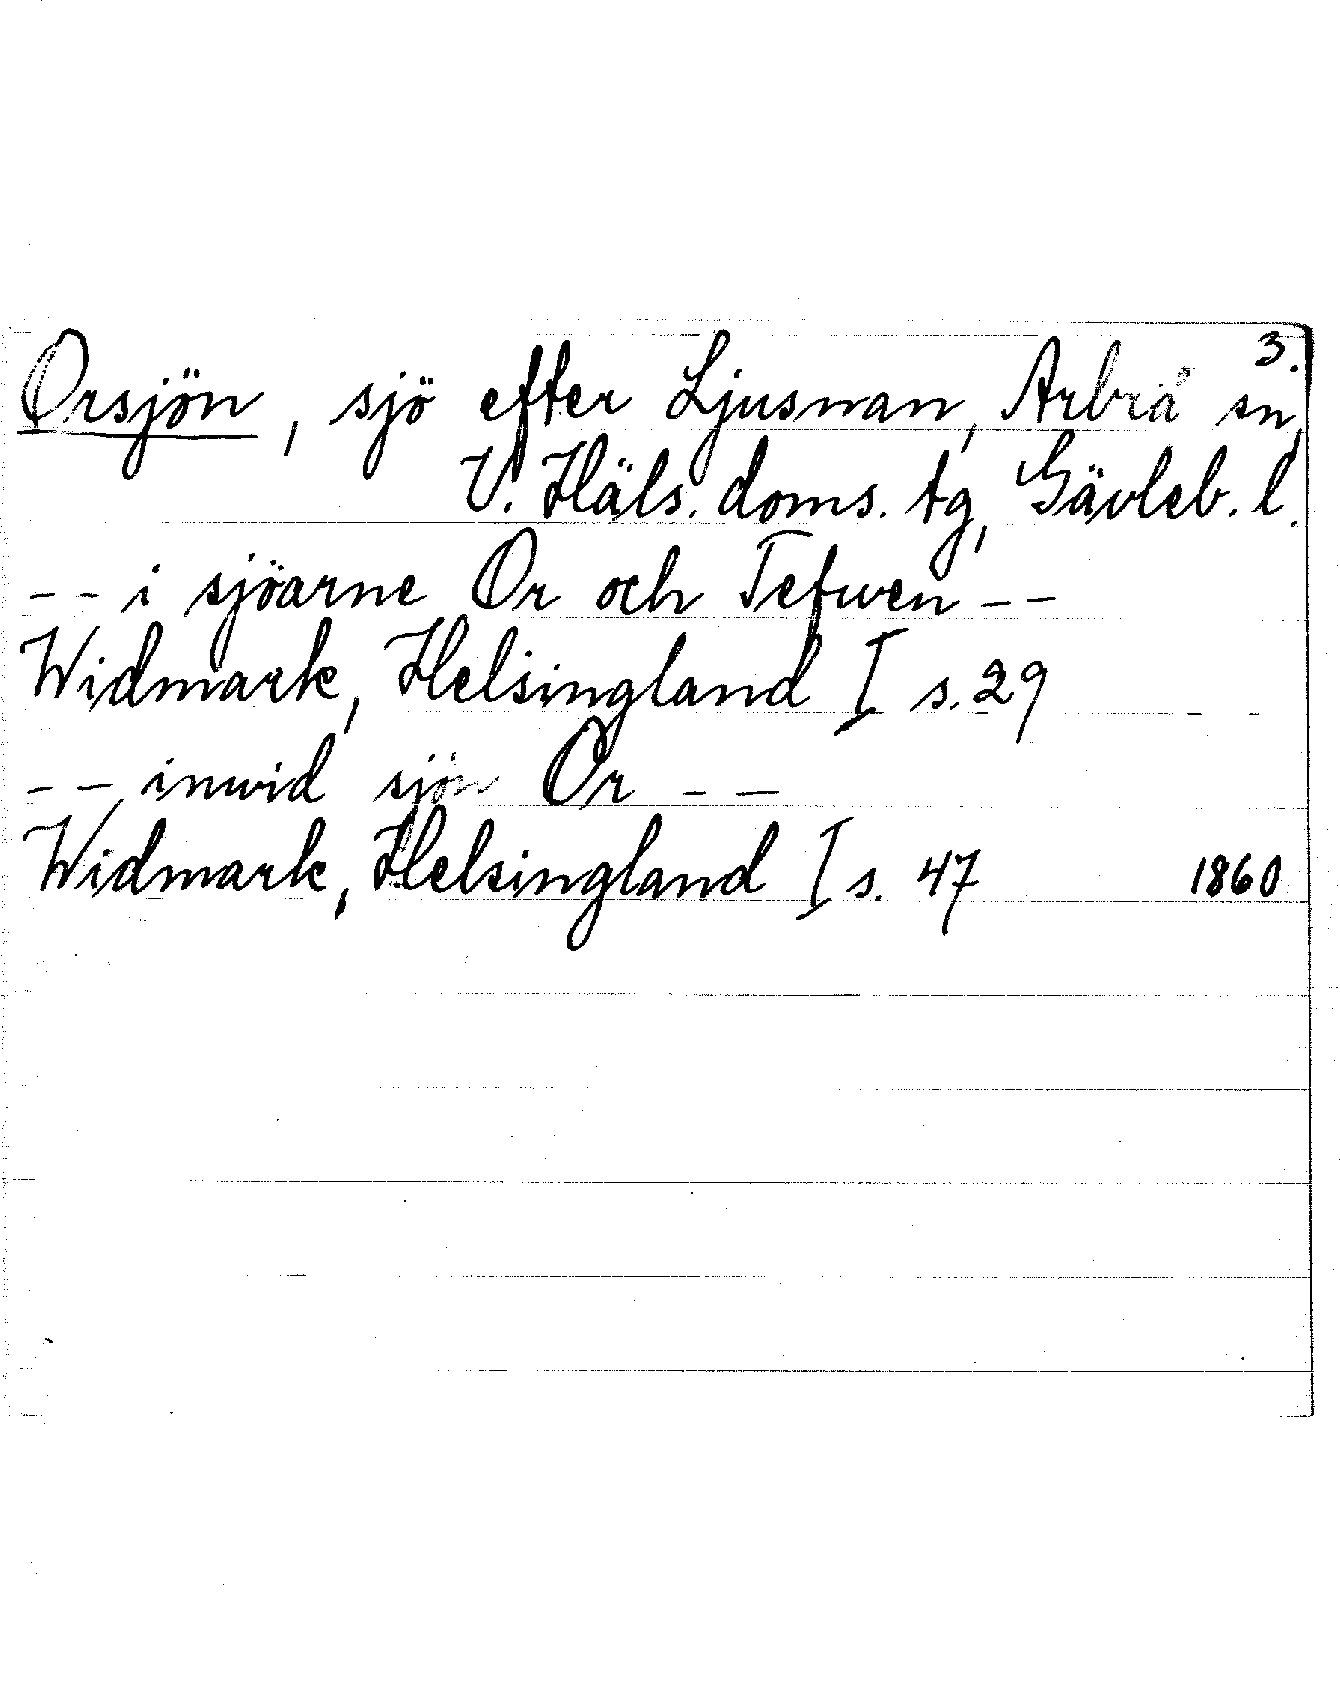 3.
Orsjön, sjö efter Ljusnan, Arbrå sn,
V. Häls. doms. tg, Gävleb. l.
-- i sjöarne Or och Tefwen --
Widmark, Helsingland I s. 29
-- inwid sjön Or --
Widmark, Helsingland I s. 47 1860